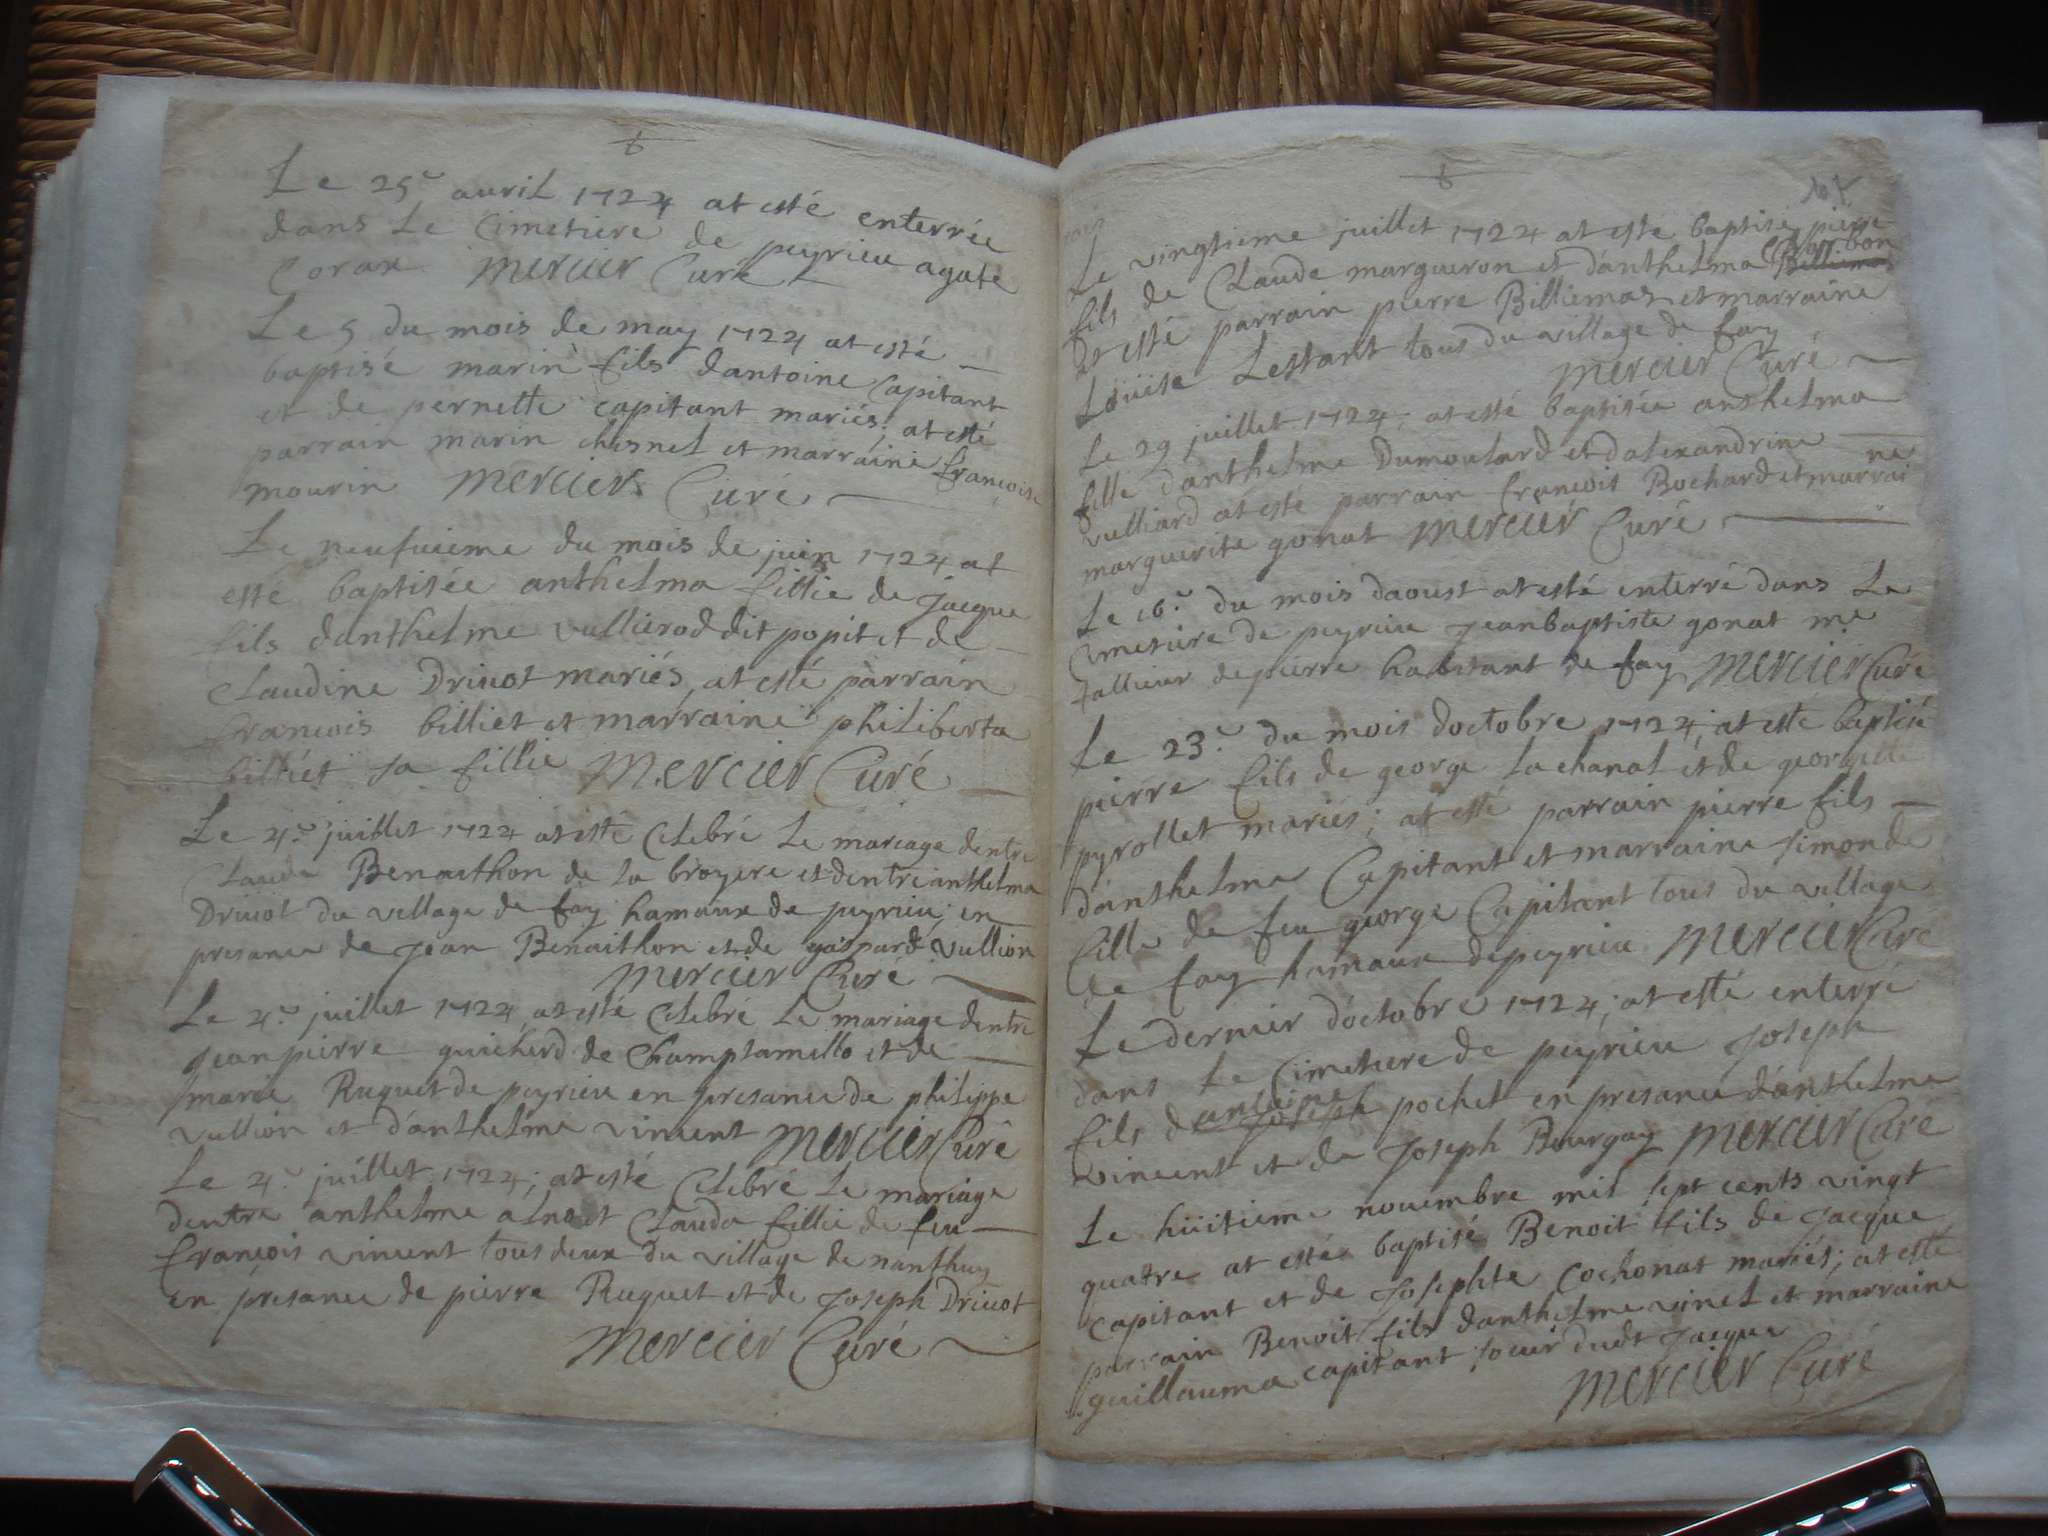 Le 25e avril 1724 at esté enterrée
dans Le Cimetiere de peyrieu agate
Coran Mercier Curé
Le 5 du mois de may 1724 at esté
baptisé marin fils dantoine Capitant
et de pernette capitant mariés; at esté
parrain marin chesnel et marraine françoise
mourin Mercier Curé
Le neufvieme du mois de juin 1724 at
esté baptisée anthelma fillie de jacque
fils danthelme vullierod dit popit et de
claudine Drivot mariés, at esté parrain
françois billiet et marraine philiberta
billiet sa fillie Mercier Curé
Le 4e juillet 1724 at esté Celebré Le mariage dentre
Claude Benaithon de la broyere et dentre anthelma
Drivot du village de fay hamaux de peyrieu; en
presance de jean Benaithon et de gaspard vullion
Mercier Curé
Le 4e juillet 1724 at esté Celebré Le mariage dentre
jeanpierre guicherd de Champtamello et de
marie Ruguet de peyrieu en presance de philippe
vullion et danthelme vincent Mercier Curé
Le 4e juillet 1724; at esté Celebré Le mariage
dentre anthelme et Clauda fillie de feu
françois vincent tous deux du village de nanthuy
en présance de pierre Ruguet et de joseph Drivot
Mercier Curé
Le vingtieme juillet 1724 at esté baptisé pierre
fils de Claude margueron et danthelma Bourbon
at esté parrain pierre Billiemas et marraine
Loüise Lestant tous du village de fay
Mercier Curé
Le 29 juillet 1724; at esté baptisée anthelma
fille danthelme Dumoulard et dalexandrine
vulliard at esté parrain françois Bochard et marrai
ne
marguerite gonat Mercier Curé
Le 16e du mois daoust at esté enterré dans Le
Cimetiere de peyrieu jeanbaptiste gonat me
tallieur depierre habitant de fay Mercier Curé
Le 23e du mois doctobre 1724; at esté baptisé
pierre fils de george Lachanal et de
pyrollet mariés; at esté parrain pierre fils
danthelme Capitant et marraine simonde
fille de feu george Capitant tous du village
de fay hamaux depeyrieu Mercier Curé
Le dernier doctobre 1724; at esté enterré
dans Le Cimetiere de peyrieu joseph
fils dantoine joseph pochet en presance danthelme
vincent et de joseph Bourgay Mercier Curé
Le hüitieme novembre mil sept cents vingt
quatre at esté baptisé Benoit fils de jacque
Capitant et de josephte Cochonat mariés; at esté
parrain Benoit fils danthelme vinel et marraine
guillauma capitant soeur dudt jacque
Mercier Curé